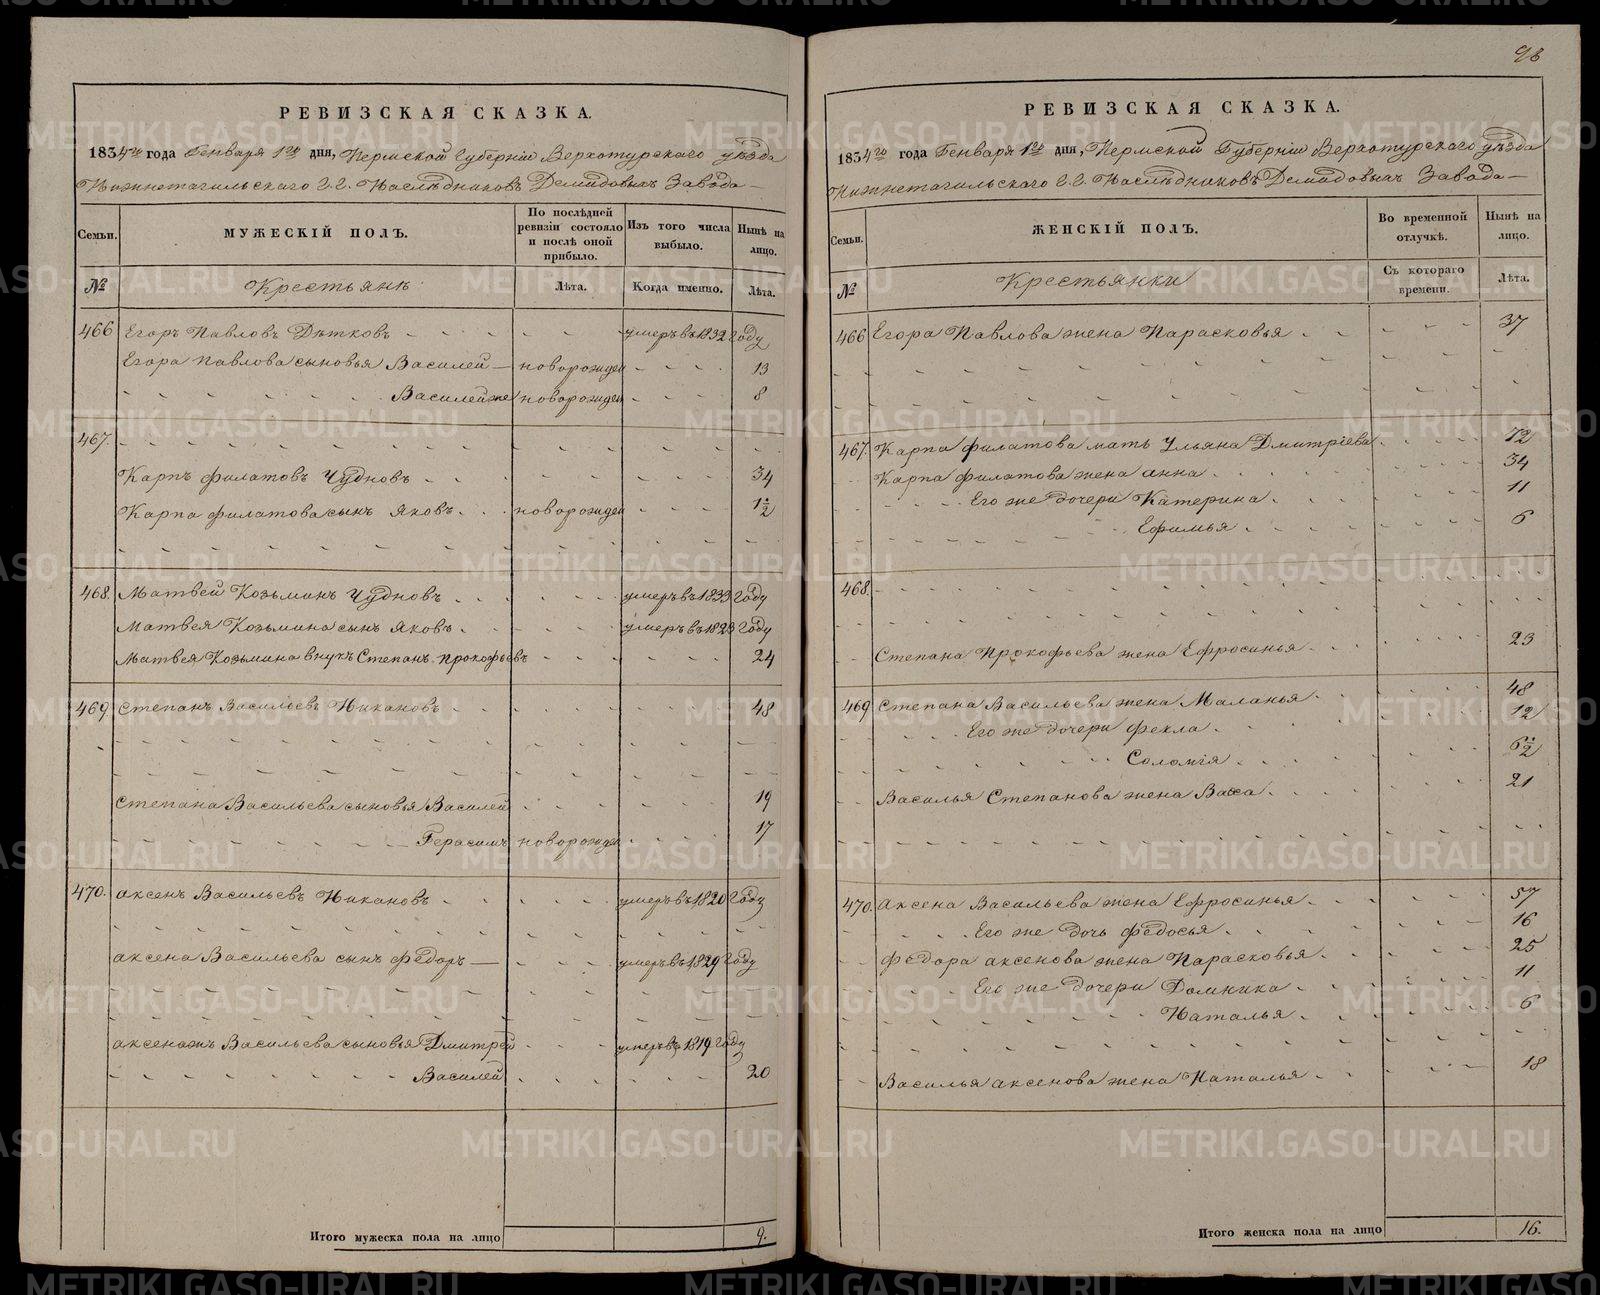 РЕВИЗСКАЯ СКАЗКА.
1834го года Генваря 1го дня, Пермской Губернiи Верхотурскаго уѣзда
Нижнетагильскаго г.г. Наслѣдниковъ Демидовыхъ Завода
Семьи.
МУЖЕСКIЙ ПОЛЪ.
По послѣдней ревизiи состояло и послѣ оной прибыло.
Изъ того числа выбыло.
Нынѣ на лицо.
№
Крестьянѣ
Лѣта.
Когда именно.
Лѣта.
466 Егоръ Павловъ Дѣтковъ умеръ въ 1832 году
Егора Павлова сыновья Василей новорожден 13
Василей же новорожден 8
467.
Карпъ филатовъ Чудновъ 34
Карпа филатова сынъ Яковъ новорожден 1½
468. Матвей Козьминъ Чудновъ умеръ въ 1833 году
Матвея Козьмина сынъ Яковъ умеръ въ 1823 году
Матвея Козьмина внукъ Степанъ прокофьевъ 24
469. Степанъ Васильевъ Никановъ 48
Степана Васильева сыновья Василей 19
Герасимъ новорожден 17
470. аксенъ Васильевъ Никановъ умеръ въ 1820 году
аксена Васильева сынъ федоръ умеръ въ 1829 году
аксена жъ Васильева сыновья Дмитрей умеръ въ 1819 году
Василей 20
Итого мужеска пола на лицо 9.
98
РЕВИЗСКАЯ СКАЗКА.
1834го года Генваря 1го дня, Пермской Губернiи Верхотурскаго уѣзда
Нижнетагильскаго г.г. Наслѣдниковъ Демидовыхъ Завода
Семьи.
ЖЕНСКIЙ ПОЛЪ.
Во временной отлучкѣ.
Нынѣ на лицо.
№
Крестьянки
Съ котораго времени.
Лѣта.
466 Егора Павлова жена Парасковья 37
467. Карпа филатова мать Ульяна Дмитрiева 72
Карпа филатова жена анна 34
Его же дочери Катерина 11
Ефимья 6
468.
Степана Прокофьева жена Ефросинья 23
469 Степана Васильева жена Маланья 48
Его же дочери фекла 12
Соломiя 6½
Василья Степанова жена Васа 21
470. аксена Васильева жена Ефросинья 57
Его же дочь федосья 16
Федора аксенова жена Парасковья 25
Его же дочери Домника 11
Наталья 6
Василья аксенова жена Наталья 18
Итого женска пола на лицо 16.
METRIKI.GASO-URAL.RU